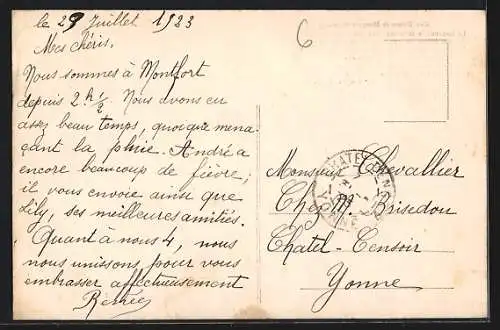 le 29 Juillet 1923
Mes Chéris,
Nous sommes à Montfort
depuis 2 h 1/2 Nous avons eu
assez beau temps, quoique mena-
çant la pluie. André a
encore beaucoup de fièvre;
il vous envoie ainsi que
Lily, ses meilleures amitiés.
Quant à nous 4, nous
nous unissons pour vous
embrasser affectueusement
Renée
6
Monsieur Chevallier
Chez M. Brisedou
Chatel-Censoir
Yonne